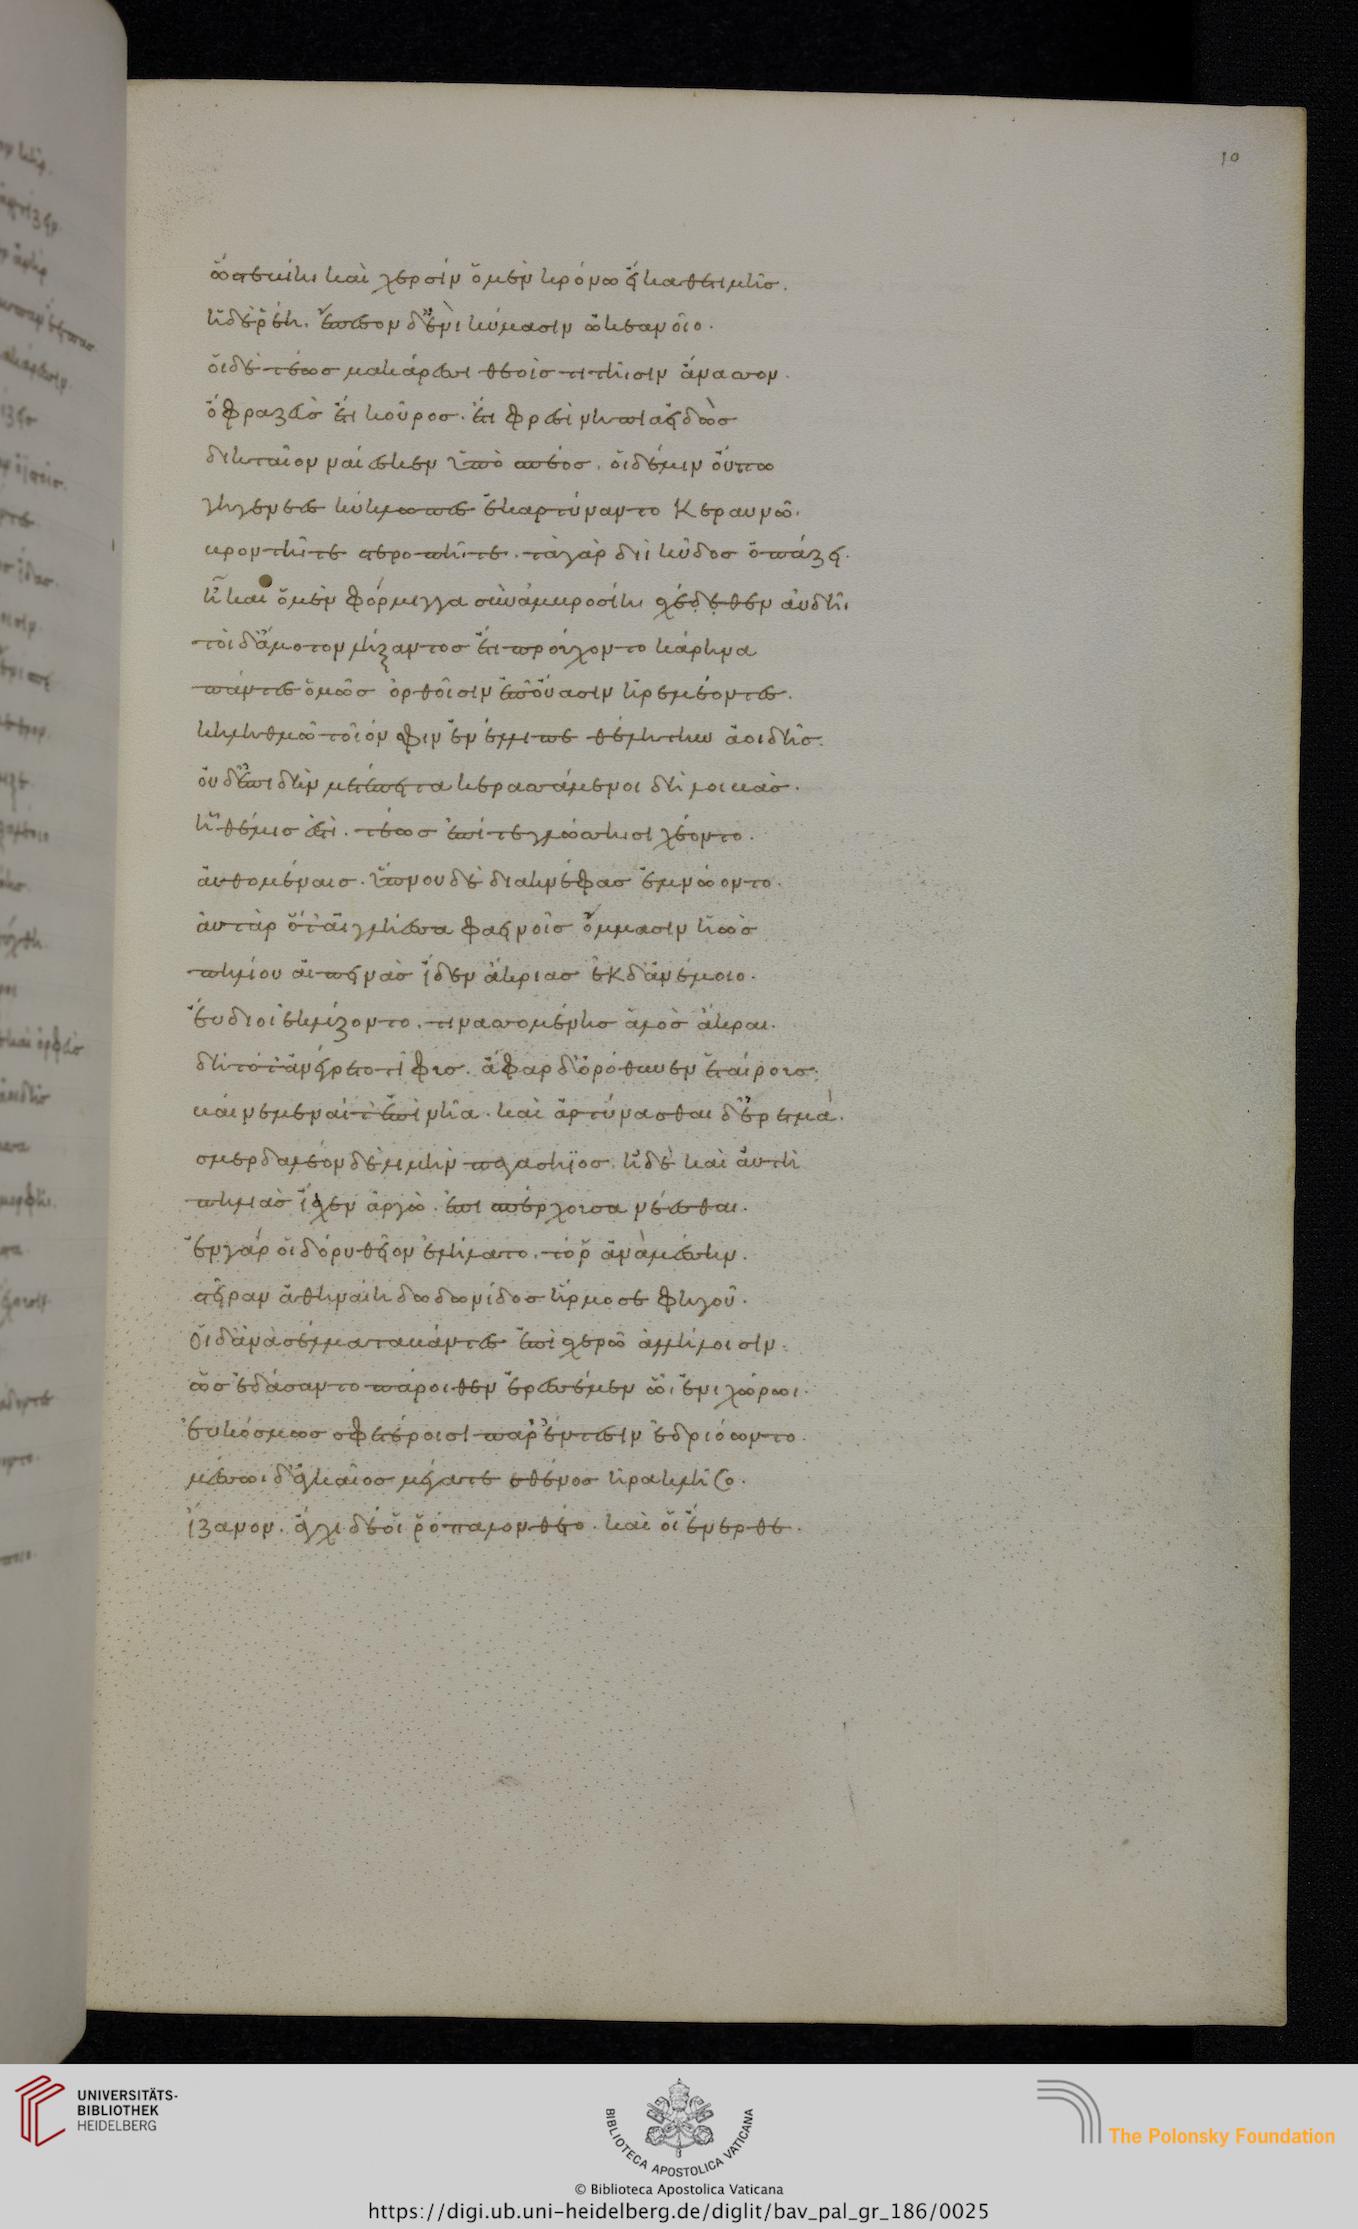 ὥς τε βίηι καὶ χερσὶν ὁ μὲν κρόνω εἴκαθε τιμῆς.
ἡ δὲ ῥέη. ἔπεσον δ' ἐνὶ κύμασιν ὠκεανοῖο.
οἱ δὲ τέως μακάρεσσι θεοῖς τιτῆσιν ἄνασσον.
ὄφρα ζεὺς ἔτι κοῦρος. ἔτι φρεσὶ νήπια εἰδὼς
δικταῖον ναίεσκεν ὑπὸ σπέος. οἱ δέ μιν οὔπω
γηγενέες κύκλωπες ἐκαρτύναντο κεραυνῶ.
βροντῆι τε στεροπῆι τε. τὰ γὰρ διὶ κῦδος ὀπάζει.
ἦ καὶ ὁ μὲν φόρμιγγα σὺν ἀμβροσίηι σχέθεν αὐδῆι
τοὶ δ' ἄμοτον λήξαντος ἔτι προύχοντο κάρηνα
πάντες ὁμῶς ὀρθοῖσιν ἐπ' οὔασιν ἠρεμέοντες.
κηληθμῶ τοῖόν σφιν ἐνέλλιπε θέλκτυν ἀοιδῆς.
οὐδ' ἐπὶ δὴν μετέπειτα κερασσάμενοι διὶ λοιβὰς.
ἣ θέμις ἐστὶ. τέως ἐπί τε γλώσσηισι χέοντο.
αἰθομέναις. ὕπνου δὲ διακνέφας ἐμνώοντο.
αὐτὰρ ὅτ' αἰγλήεσσα φαεινοῖς ὄμμασιν ἠὼς
πηλίου αἰπεινὰς ἴδεν ἄκριας ἐκ δ' ἀνέμοιο.
εὔδιοι ἐκλύζοντο. τινασσομένης ἁλὸς ἄκραι.
δὴ τότ' ἀνέγρετο τῖφυς. ἄφαρ δ' ὀρόθυνεν ἑταίρους.
βαινέμεναί τ' ἐπὶ νῆα. καὶ ἀρτύνασθαι δ' ἐρετμά.
σμερδαλέον δὲ λιμὴν παγασήϊος. ἠδὲ καὶ αὐτὴ
πηλιὰς ἴαχεν ἀργὼ. ἐπισπέρχουσα νέεσθαι.
ἐν γάρ οἱ δόρυ θεῖον ἐλήλατο. τό ῥ' ἀνὰ μέσσην.
στεῖραν ἀθηναίη δωδωνίδος ἥρμοσε φηγοῦ.
οἱ δ' ἀνὰ σέλματα βάντες ἐπισχερὼ ἀλλήλοισιν.
ὡς ἐδάσαντο πάροιθεν ἐρεσσέμεν ὧι ἐνὶ χώρωι.
εὐκόσμως σφετέροισι παρ' ἔντεσιν ἑδριόωντο.
μέσσωι δ' ἀγκαῖος μέγα τε σθένος ἡρακλῆος.
ἵζανον. ἄγχι δέ οἱ ῥόπαλον θέτο. καὶ οἱ ἔνερθε.
10
UNIVERSITÄTS-
BIBLIOTHEK
HEIDELBERG
BIBLIOTECA APOSTOLICA VATICANA
The Polonsky Foundation
© Biblioteca Apostolica Vaticana
https://digi.ub.uni-heidelberg.de/diglit/bav_pal_gr_186/0025